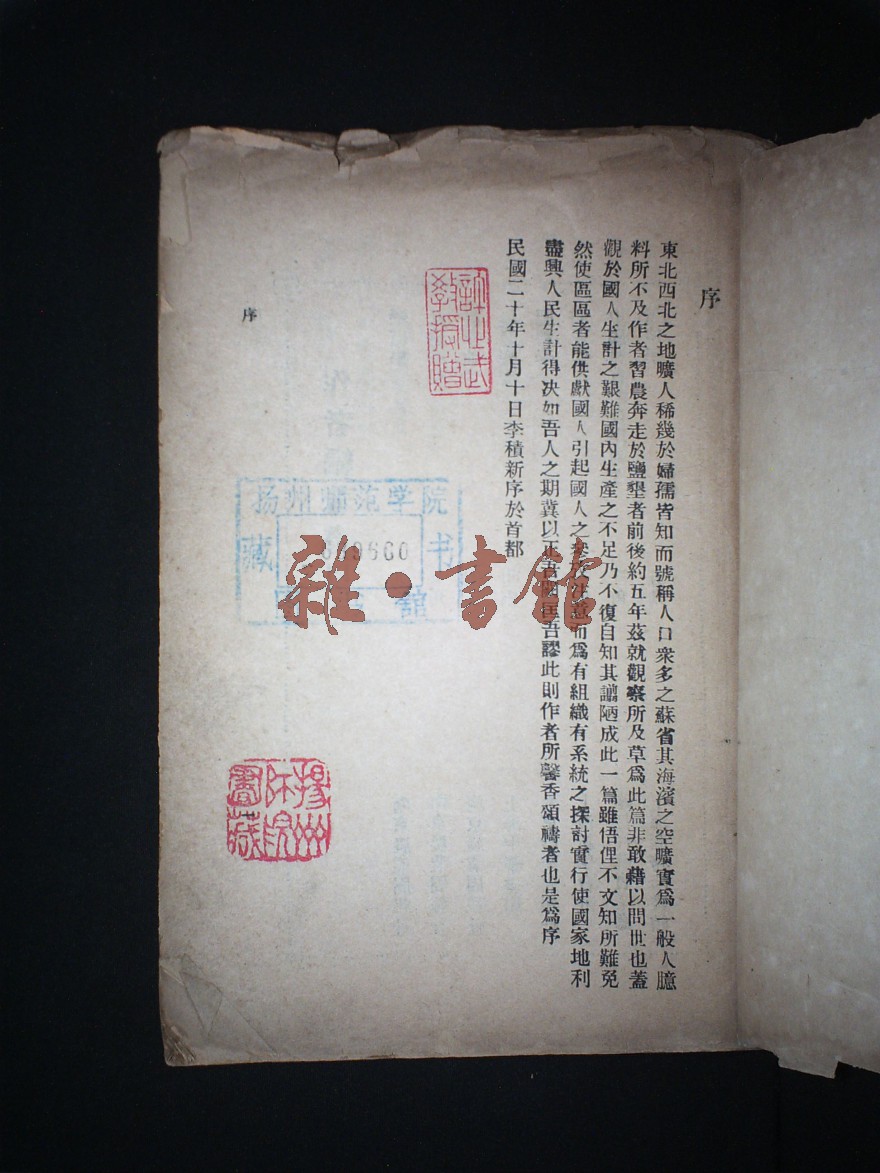 序
東北西北之地曠人稀幾於婦孺皆知而號稱人口衆多之蘇省其海濱之空曠實爲一般人臆
料所不及作者習農奔走於鹽墾者前後約五年茲就觀察所及草爲此篇非敢藉以問世也蓋
觀於國人生計之艱難國內生產之不足乃不復自知其譾陋成此一篇雖俚不文知所難免
然使區區者能供獻國人引起國人之注意而爲有組織有系統之探討實行使國家地利
盡興人民生計得決如吾人之期冀以正吾匡吾謬此則作者所馨香頌禱者也是爲序
民國二十年十月十日李積新序於首都
許止武
教授贈
扬州师范学院
藏 书
009660
雜·書館
揚州
師院
圖書藏
序